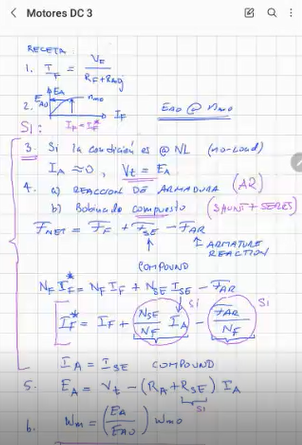 Motores DC 3
RECETA:
1. I_F = V_F / (R_F + R_Aug)
2. E_A
E_A0
n_m0
I_F
E_A0 @ n_m0
Si: I_F = I_F*
3. Si la condición es @ NL (no-load)
I_A ≈ 0, V_t = E_A
4. a) REACCION DE ARMADURA (AR)
b) Bobinado compuesto (SHUNT + SERIES)
F_NET = F_F + F_SE - F_AR
↑ ARMATURE REACTION
COMPOUND
N_F I_F* = N_F I_F + N_SE I_SE - F_AR
SI SI
I_F* = I_F + (N_SE / N_F) I_A - F_AR / N_F
I_A = I_SE COMPOUND
5. E_A = V_t - (R_A + R_SE) I_A
SI
6. W_m = (E_A / E_A0) W_m0